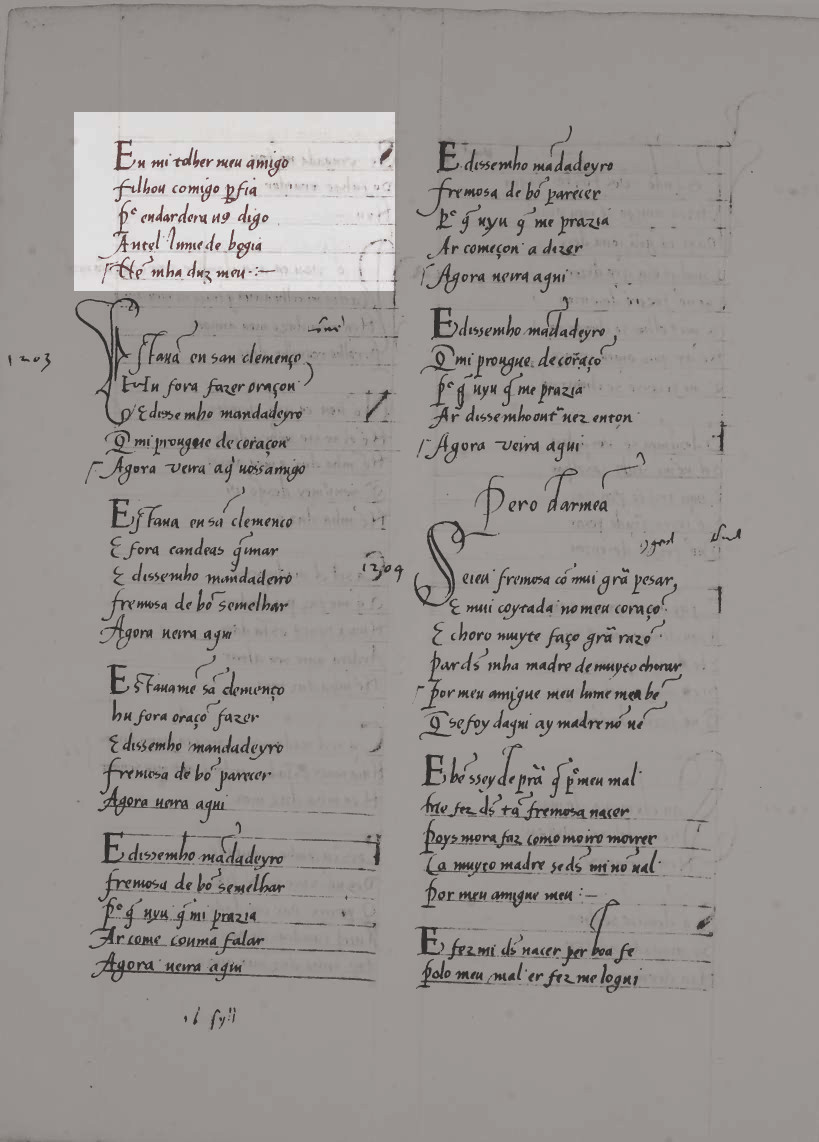 En mi tolher meu amigo
filhou comigo ꝑfia
ꝑᵒ endardera uꝯ digo
Antel lume de bogia
mha duz meu
1203
Estaua en san clemenço
hu fora fazer oraçon
E disse mho mandadeyro
Q̃ mi prougue de coraçon
Agora ueira aqͥ uossamigo
Estaua en sã clemenço
E fora candeas q̃imar
E dissemho mandadeiro
fremosa de bõ semelhar
Agora ueira aqui
Estauame sã clemenço
hu fora oraçõ fazer
E dissemho mandadeyro
fremosa de bõ parecer
Agora ueira aqui
E dissemho mãdadeyro
fremosa de bõ semelhar
ꝑᵒ q̃ uyu q̃ mi prazia
Ar come couma falar
Agora ueira aqui
E dissemho mãdadeyro
fremosa de bõ parecer
ꝑᵒ q̃ uyu q̃ me prazia
Ar começou a dizer
Agora ueira aqui
E dissemho mãdadeyro
Q̃ mi prougue de coraçõ
ꝑᵒ q̃ uyu q̃ me prazia
Ar dissemho outͬ uez enton
Agora ueira aqui
Pero darmeã
1204
Seieu fremosa cõ mui grã pesar
E mui coytada no meu coraçõ
E choro muyte faço grã razõ
Par ds̃ mha madre de muyto chorar
Por meu amigue meu lume meu bẽ
Q̃ se foy daqui ay madre nõ uẽ
E bẽ ssey de prã q̃ pᵒ meu mal
me fez ds̃ tã fremosa nacer
Poys mora faz como moiro morrer
Ca muyto madre se ds̃ mi nõ ual
Por meu amigue meu
E fez mi ds̃ nacer per boa fe
Polo meu mal er fez me logui